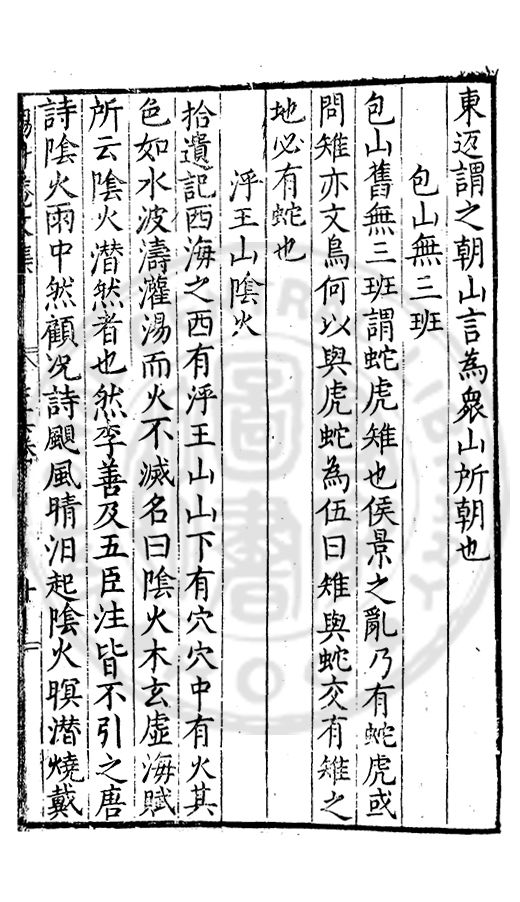 東迈謂之朝山言為衆山所朝也
包山無三班
包山舊無三班謂蛇虎雉也侯景之亂乃有蛇虎或
問雉亦文鳥何以與虎蛇為伍曰雉與蛇交有雉之
地必有蛇也
浮王山隂火
拾遺記西海之西有浮王山山下有穴穴中有火其
色如水波濤灌湯而火不滅名曰隂火木玄虚海賦
所云隂火潜然者也然李善及五臣注皆不引之唐
詩隂火雨中然顧况詩颶風晴汨起隂火暝潜燒戴